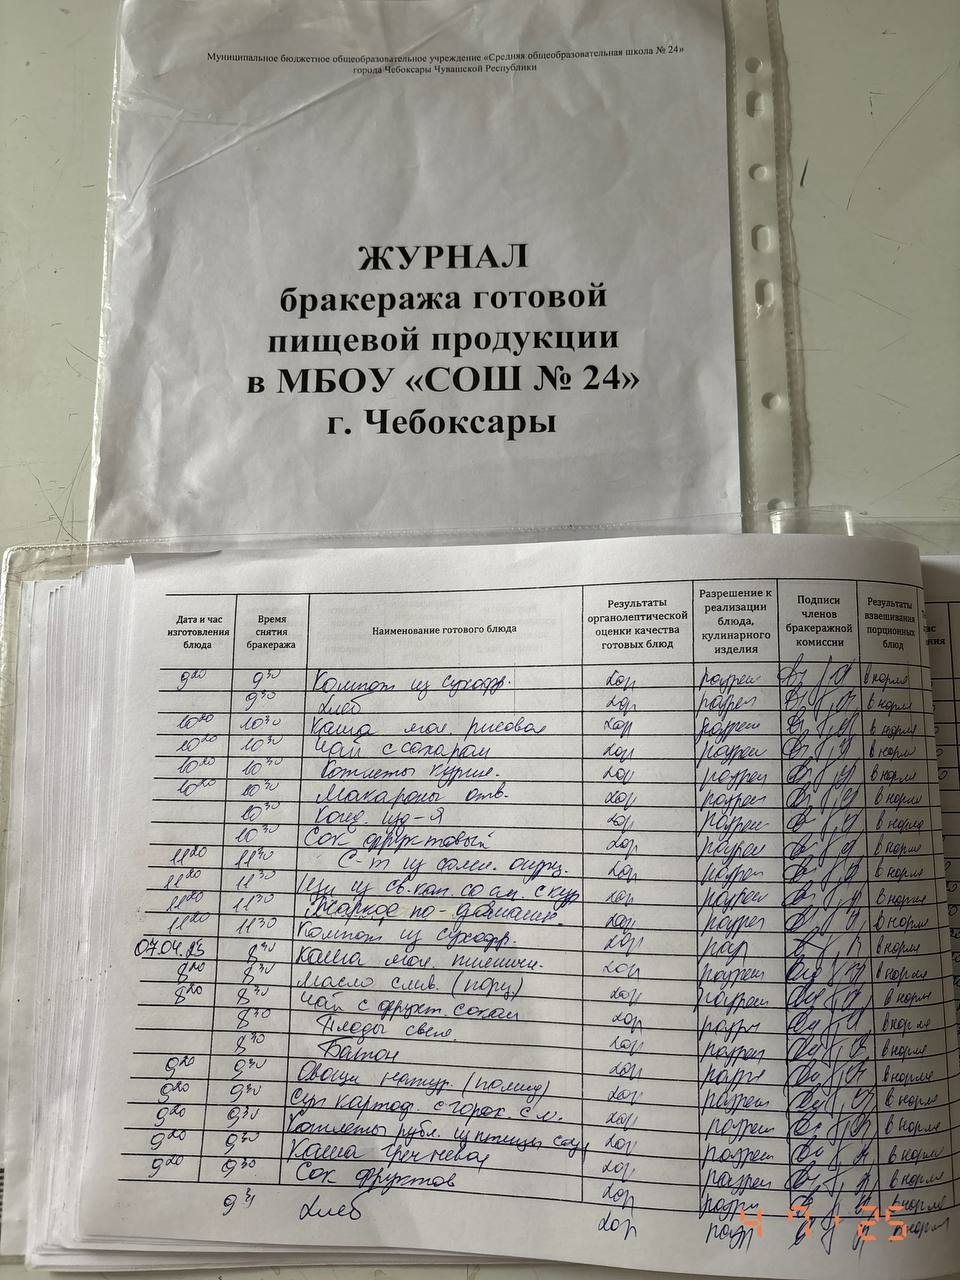 Муниципальное бюджетное общеобразовательное учреждение «Средняя общеобразовательная школа № 24»
города Чебоксары Чувашской Республики
ЖУРНАЛ
бракеража готовой
пищевой продукции
в МБОУ «СОШ № 24»
г. Чебоксары
Дата и час изготовления блюда Время снятия бракеража Наименование готового блюда Результаты органолептической оценки качества готовых блюд Разрешение к реализации блюда, кулинарного изделия Подписи членов бракеражной комиссии Результаты взвешивания порционных блюд
9 20 9 30 Компот из сухофр. хор разреш в норме
9 30 Хлеб хор разреш в норме
10 20 10 30 Каша мол рисовая хор разреш в норме
10 20 10 30 Чай с сахаром хор разреш в норме
10 20 10 30 Котлеты хор разреш в норме
10 20 10 30 Макароны отв. хор разреш в норме
10 30 Конд. изд-я хор разреш в норме
10 30 Сок фруктовый хор разреш в норме
11 20 11 30 С-т из солен. огурц. хор разреш в норме
11 20 11 30 Щи из св. кап. со см. с кур хор разреш в норме
11 20 11 30 Жаркое по-домашн. хор разреш в норме
11 20 11 30 Компот из сухофр. хор раз в норме
07.04.25 8 30 Каша мол. пшенич. хор разреш в норме
8 20 8 30 Масло слив. (порц) хор разреш в норме
8 20 8 30 Чай с фрукт. соком хор разр в норме
8 30 Плоды свеж. хор разреш в норме
8 30 Батон хор разр в норме
9 20 9 30 Овощи натур. (помид) хор разреш в норме
9 20 9 30 Суп картоф. с горох с м. хор разреш в норме
9 20 9 30 Котлеты рубл. из птицы хор разреш в норме
9 20 9 30 Каша гречневая хор разреш в норме
9 20 9 30 Сок фруктов хор разр в норме
9 30 Хлеб хор разр в норме
4 7 '25